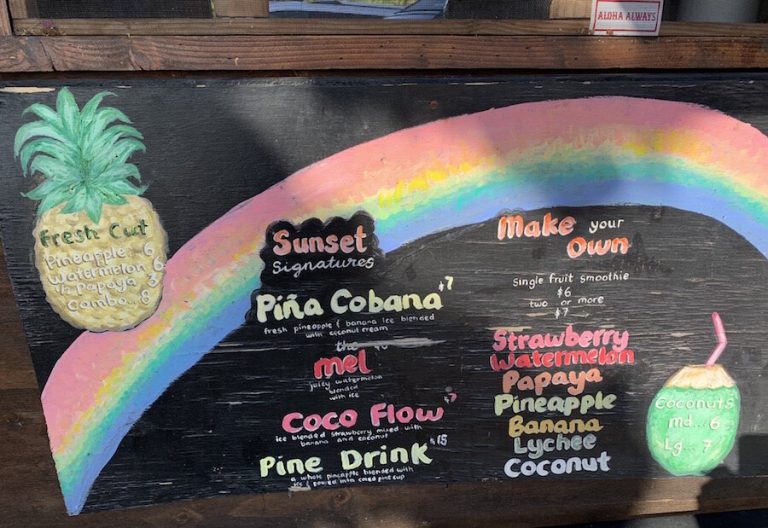 ALOHA ALWAYS
Fresh Cut
Pineapple .. 6
Watermelon 6
½ papaya 3
Combo... 8
Sunset
Signatures
Piña Cobana $7
fresh pineapple & banana ice blended
with coconut cream
the
mel
juicy watermelon
blended
with ice
Coco Flow $7
ice blended strawberry mixed with
banana and coconut
Pine Drink $15
a whole pineapple blended with
ice & poured into cored pine cup
Make your
Own
single fruit smoothie
$6
two or more
$7
Strawberry
Watermelon
Papaya
Pineapple
Banana
Lychee
Coconut
Coconuts
md... 6
Lg... 7